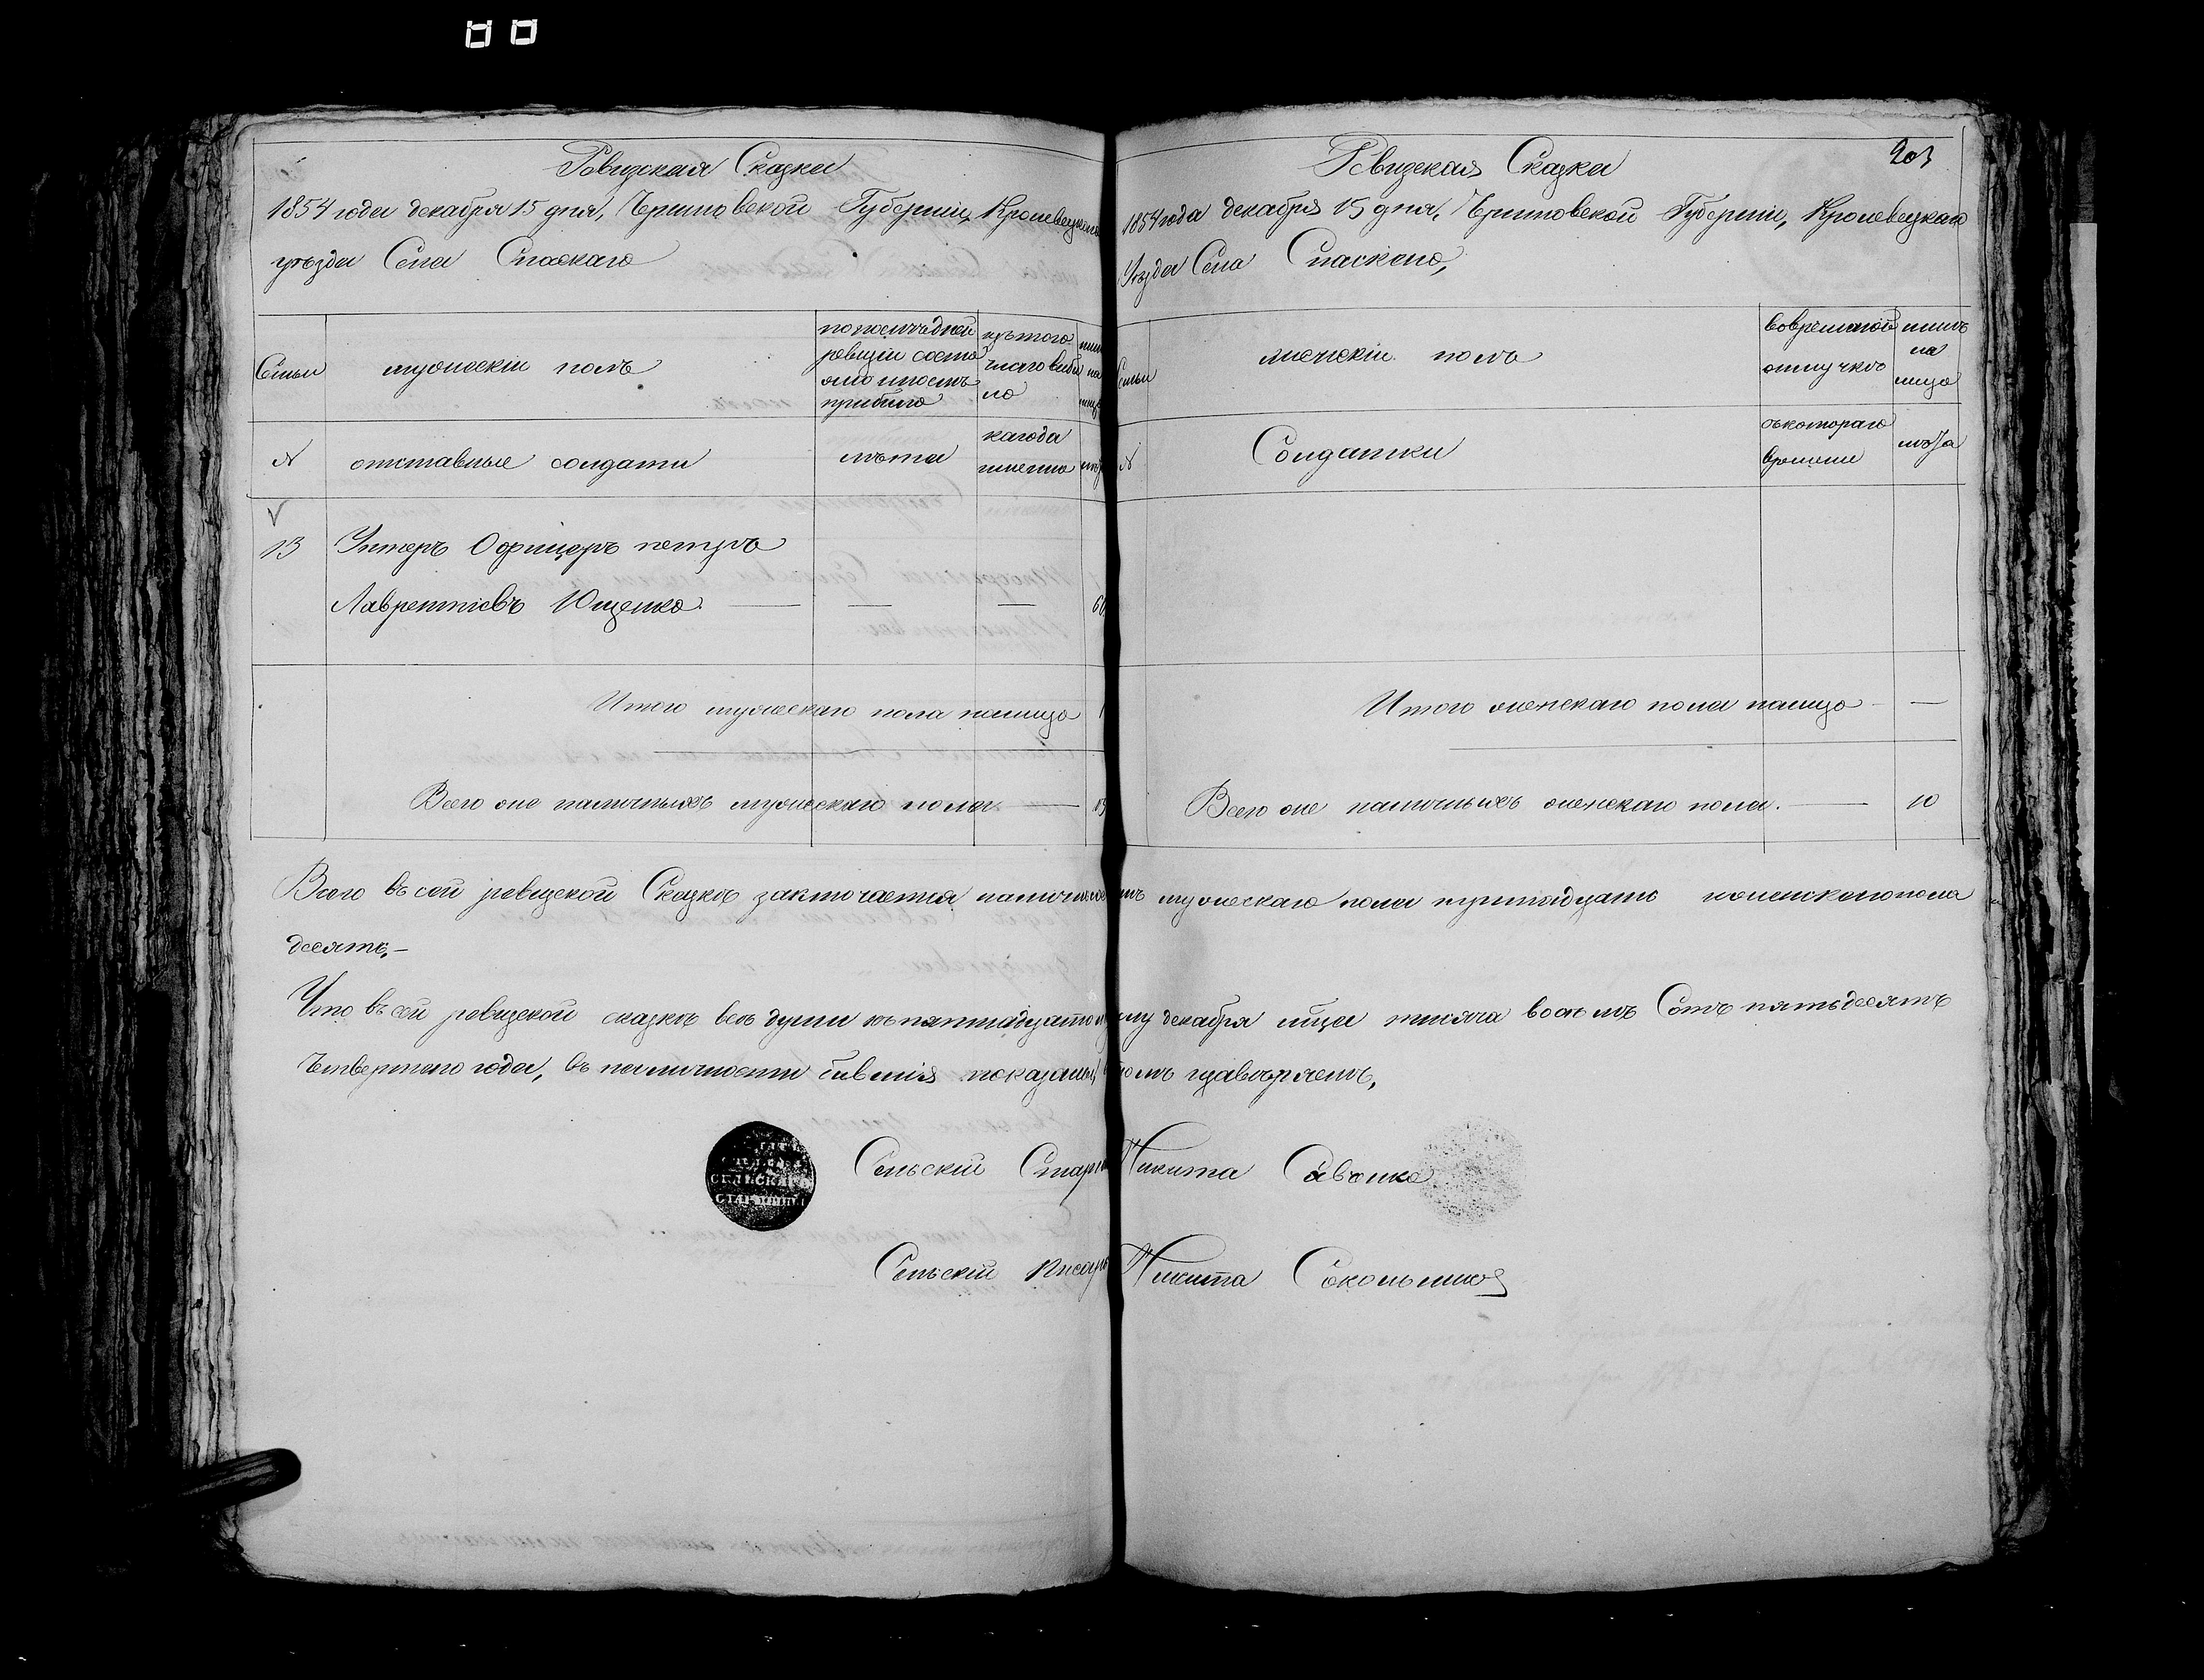 Ревизская Сказка
1854 года декабря 15 дня, Черниговской Губерніи, Кролевецкаго
уезда Села Спаскаго
Семьи
мужескій полъ
по последней
ревизіи состо
яло и после
прибыло
изъ того
числа выбы
ло
ныне
на
лицо
N
отставные солдаты
лета
кагода
именно
лета
13 Унтеръ Офицеръ петръ
Лаврентіевъ Ющенко — — —
Итого мужескаго пола налицо 1
Всего же наличныхъ мужескаго пола — 13
203
Ревизская Сказка
1854 года декабря 15 дня, Черниговской Губерніи, Кролевецкаго
Уезда Села Спаскаго,
Семьи
женскій полъ
вовременной
отлучке
ныне
на
лицо
N
Солдатки
съкотораго
времени
лета
Итого женскаго пола налицо —
Всего же наличныхъ женскаго пола. — 10
Всего въ сей ревизской Сказке заключается наличныхъ мужескаго пола тринадцать иженскаго пола
десять, —
Что въ сей ревизской сказке все души къ пятнадцатому декабря тысяча восемъ Сотъ пятьдесятъ
Четвертаго года, въ наличности бывшія показаны, въ томъ удаверяемъ,
СЕЛЬСКАГО
СТАРШИНЫ
Сельскій Старшина Никита Савонко
Сельскій Писарь Никита Сокольников